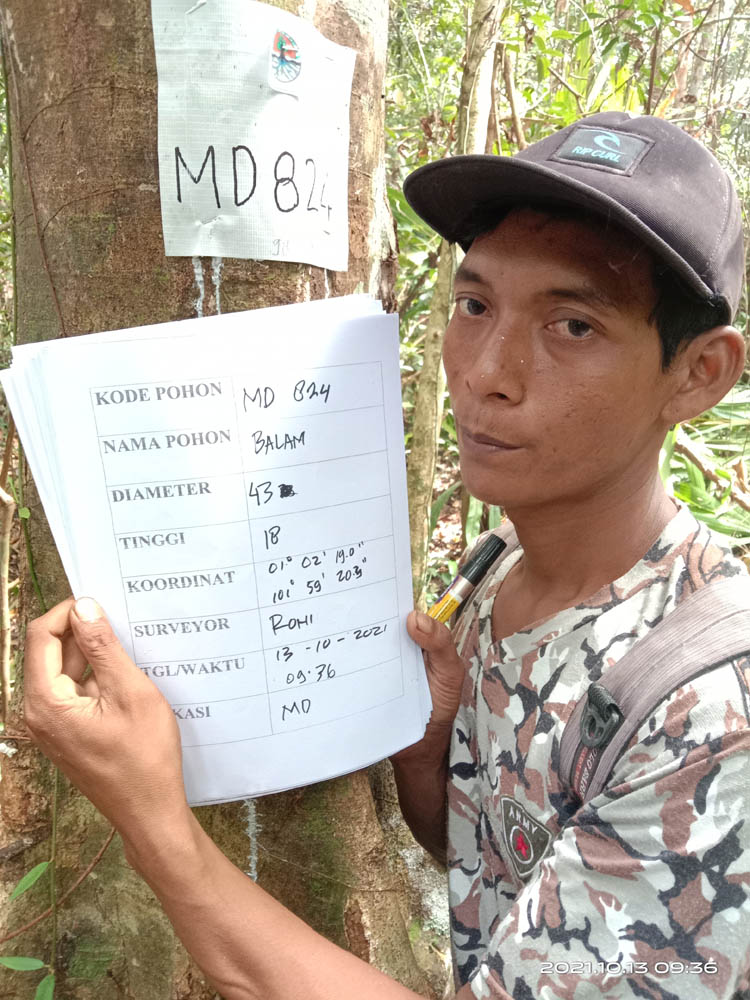 MD 824
RIP CURL
KODE POHON MD 824
NAMA POHON BALAM
DIAMETER 43
TINGGI 18
KOORDINAT 01° 02' 19.0"
101° 59' 20.3"
SURVEYOR ROMI
TGL/WAKTU 13 - 10 - 2021
09:36
KASI MD
ARMY
2021.10.13 09:36